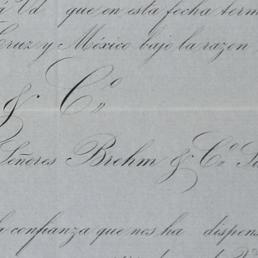 á Vd que en esta fecha term
Cruz y México bajo la razon
& Co
Señores Brehm & Co. Su
la confianza que nos ha dispens